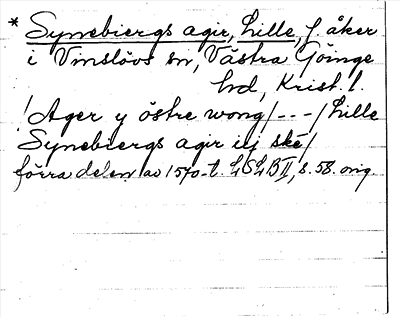 * Synebiergs agir, Lille, f. åker
i Vinslövs sn, Västra Göinge
hd, Krist. l.
! Ager y östre wong / - - - / Lille
Synebiergs agir iij ske /
förra delen av 1570-t. LSLB II, s. 58. orig.